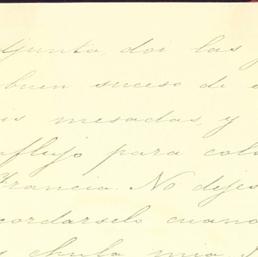 djunta, doi las
buen suceso de
is mesadas, y
nflujo para col
Francia. No dejes
cordarselo cuan
chula mia